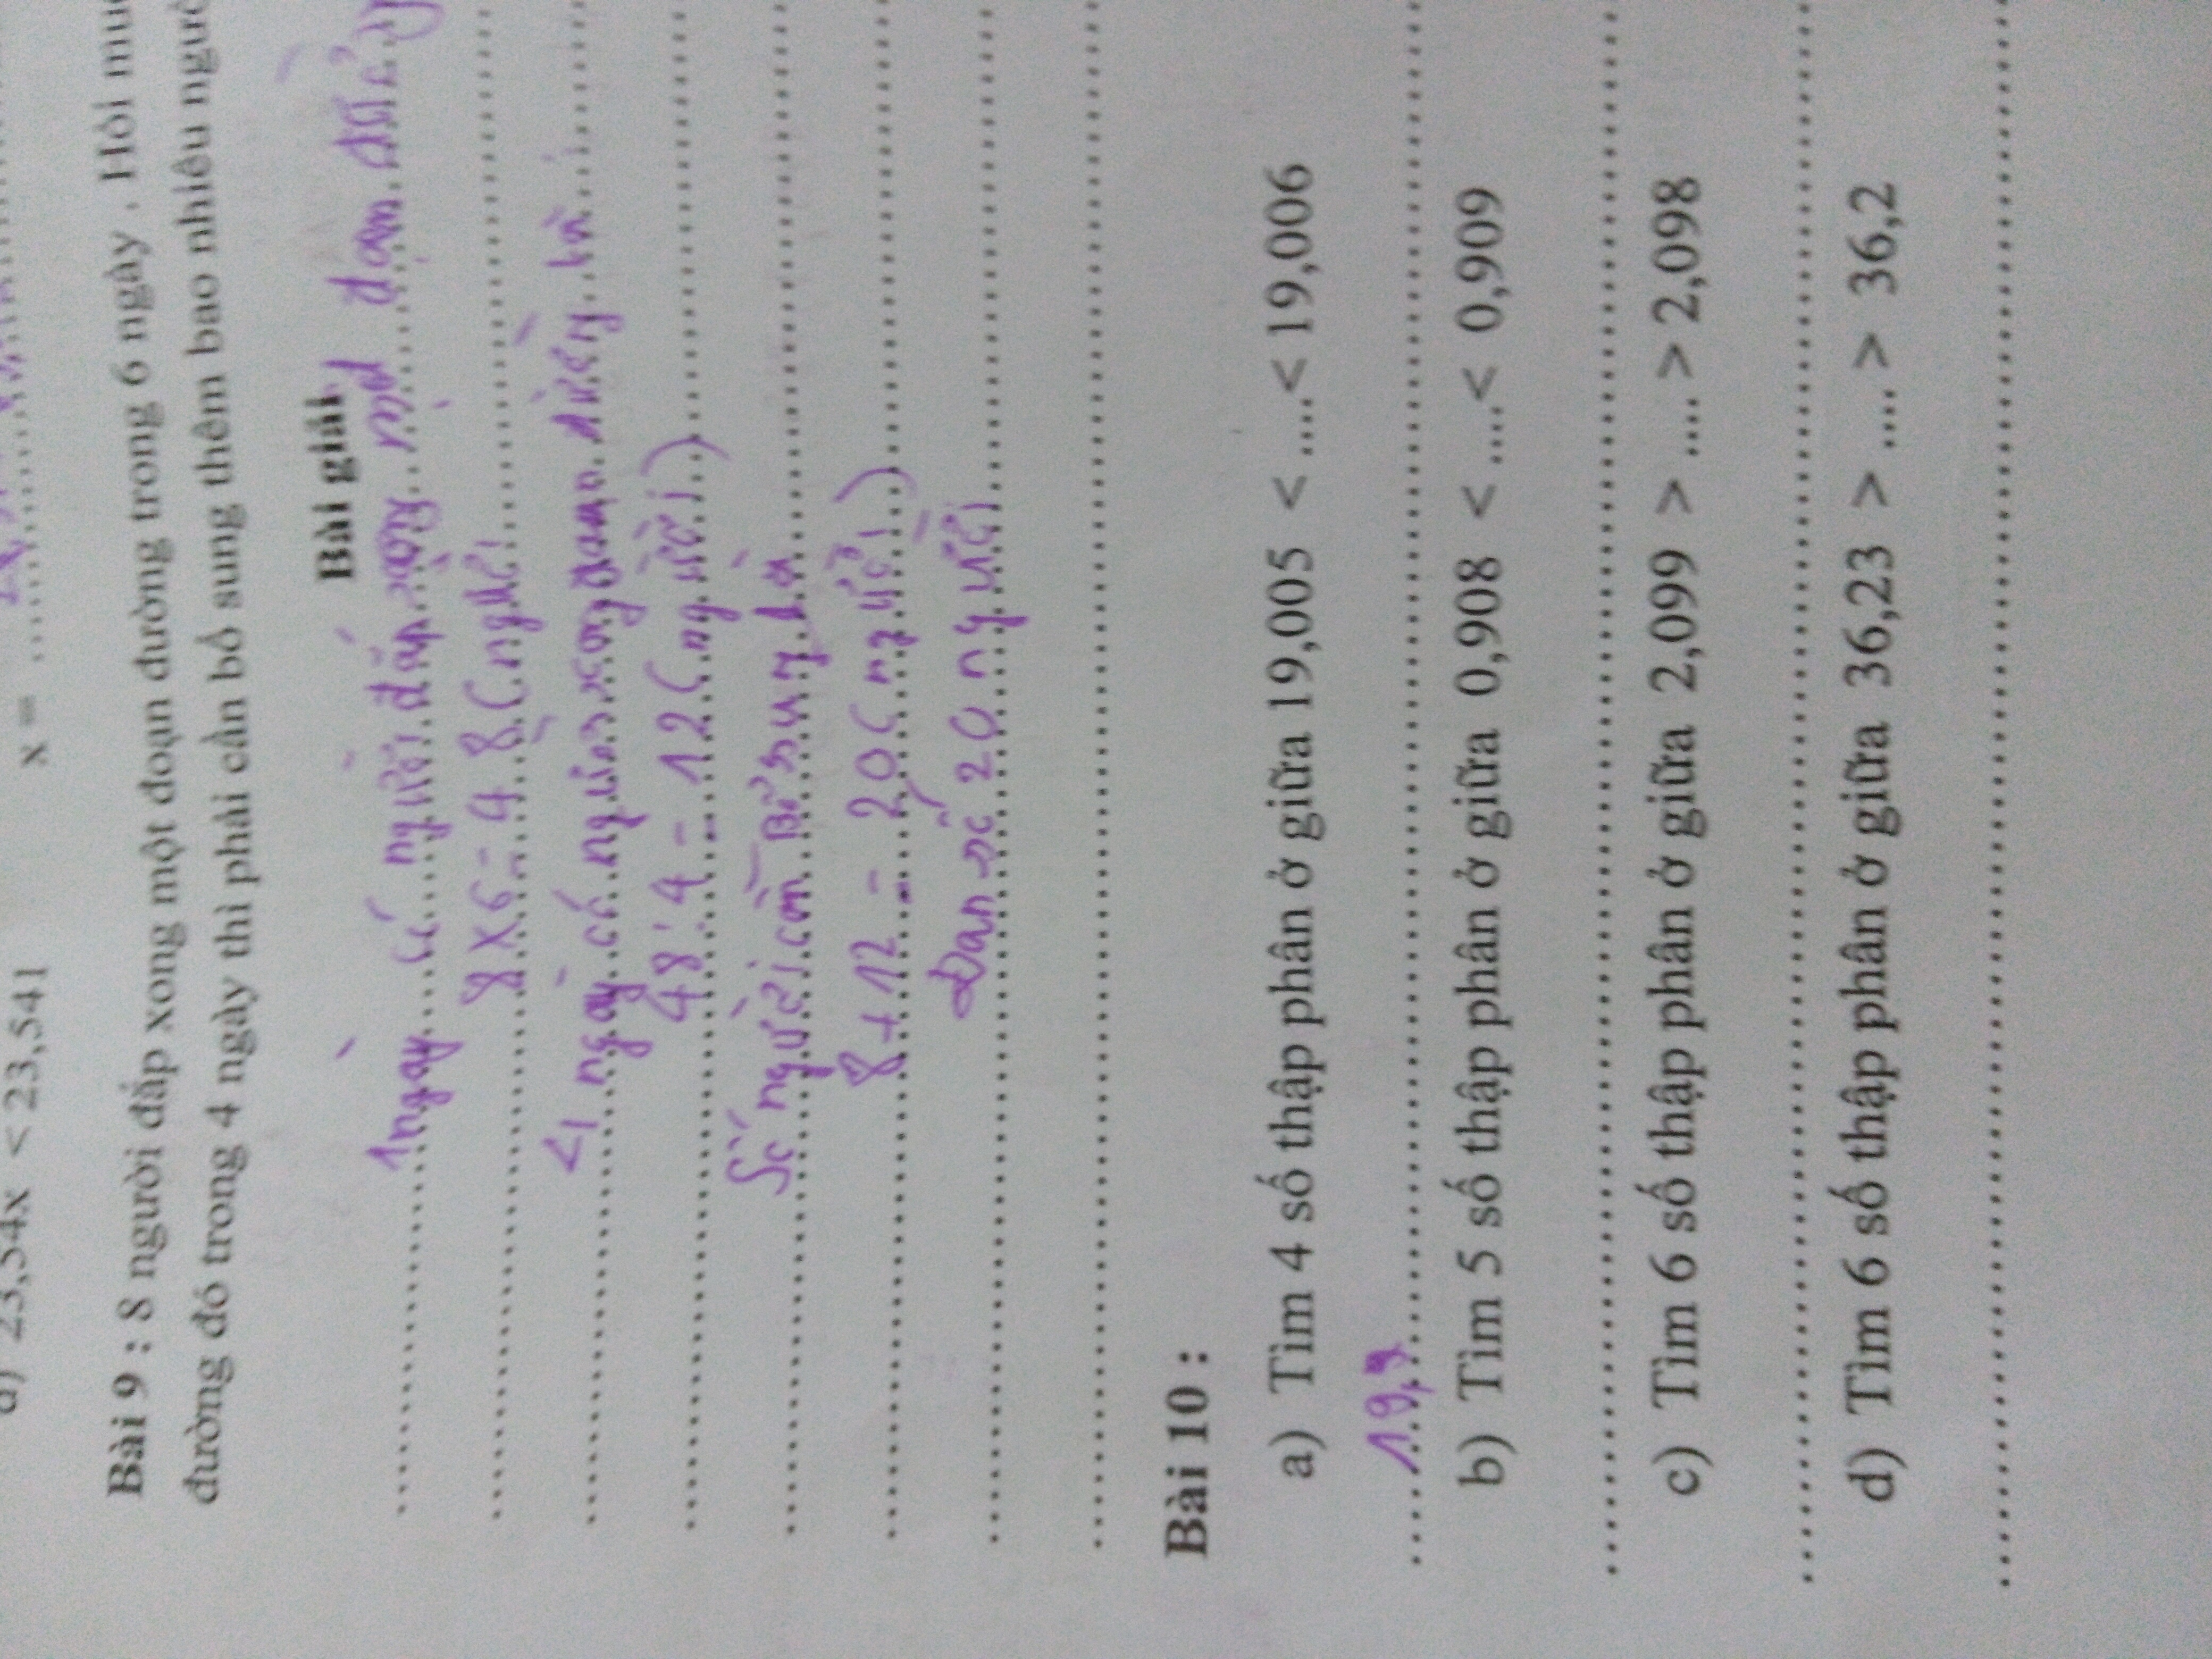 x = ............
d) 23,54x < 23,541
Bài 9 : 8 người đắp xong một đoạn đường trong 6 ngày . Hỏi muố
đường đó trong 4 ngày thì phải cần bổ sung thêm bao nhiêu ngườ
Bài giải
1 ngày có người đắp xong một đoạn
8 x 6 = 48 (người
4 ngày có người xong đoạn đường là
48 : 4 = 12 (người)
Số người cần bổ sung là
8 + 12 = 20 (người)
Đan số 20 người
Bài 10 :
a) Tìm 4 số thập phân ở giữa 19,005 < ....< 19,006
19,9
b) Tìm 5 số thập phân ở giữa 0,908 < ....< 0,909
c) Tìm 6 số thập phân ở giữa 2,099 > .... > 2,098
d) Tìm 6 số thập phân ở giữa 36,23 > .... > 36,2